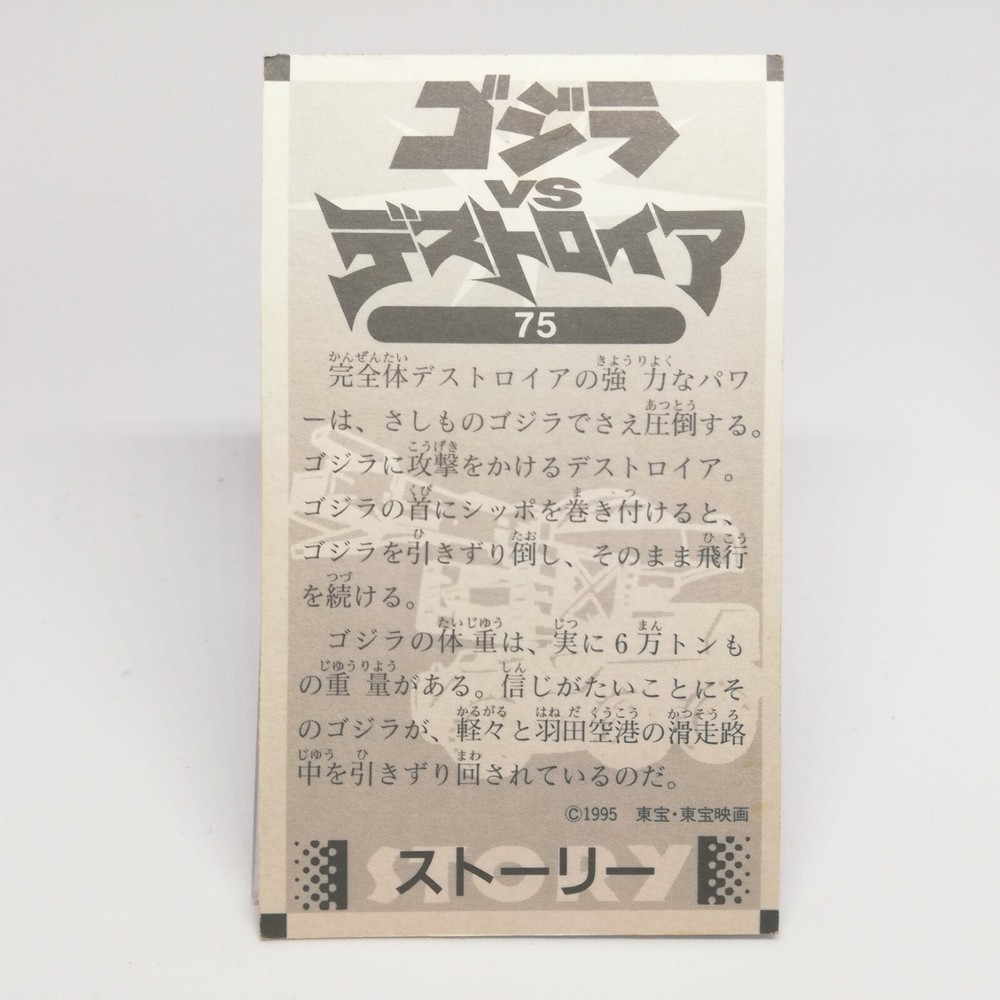 ゴジラ
VS
デストロイア
75
完全体デストロイアの強力なパワ
ーは、さしものゴジラでさえ圧倒する。
ゴジラに攻撃をかけるデストロイア。
ゴジラの首にシッポを巻き付けると、
ゴジラを引きずり倒し、そのまま飛行
を続ける。
ゴジラの体重は、実に6万トンも
の重量がある。信じがたいことにそ
のゴジラが、軽々と羽田空港の滑走路
中を引きずり回されているのだ。
©1995 東宝・東宝映画
STORY
ストーリー